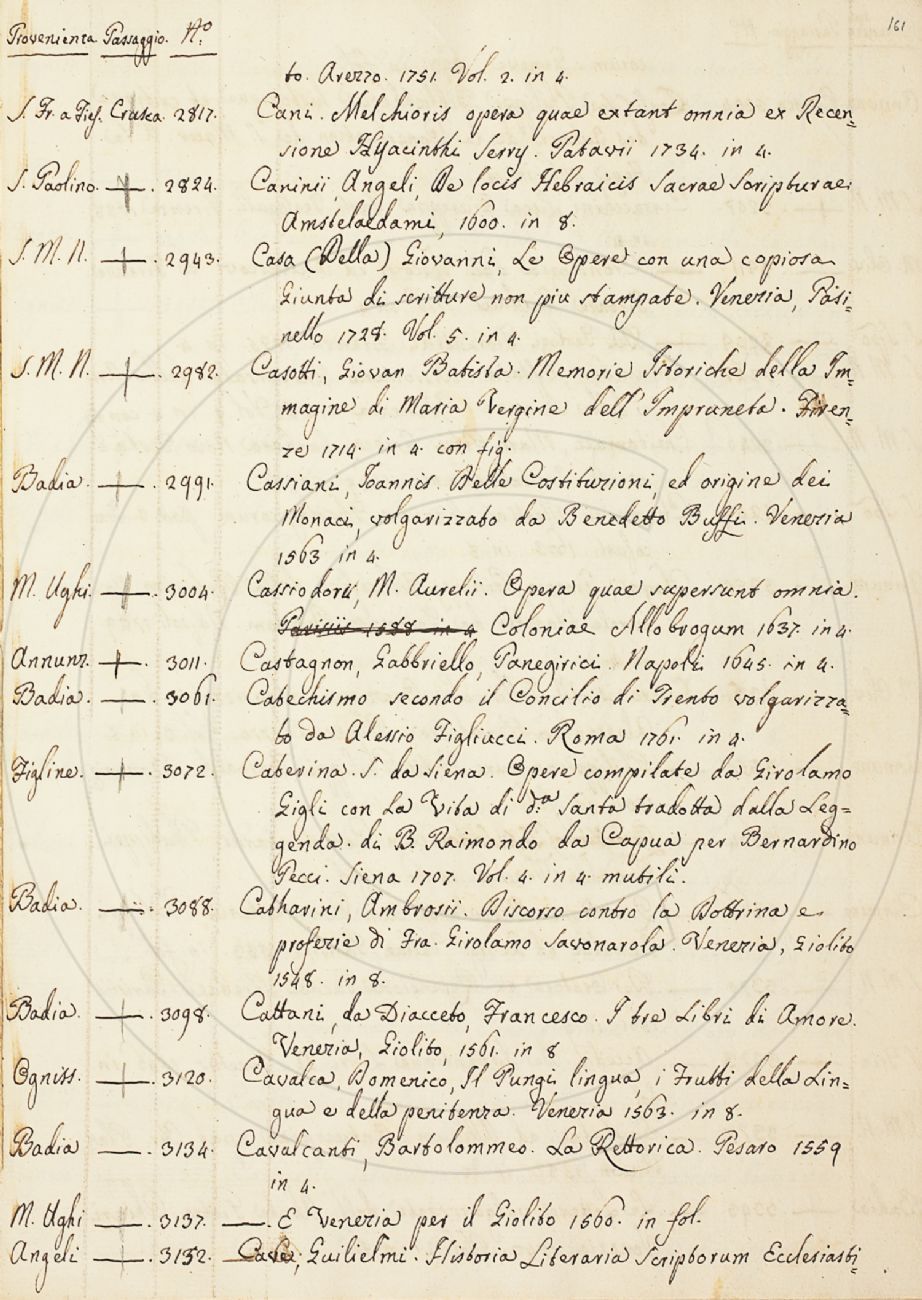 161
Provenienza Passaggio. No.
to. Arezzo. 1751. Vol. 2. in 4.
S. Fr. a Fies. Crusca. 2817. Cani. Melchioris opera quae extant omnia ex Recen=
sione Hyacinthi Serry. Patavii 1734. in 4.
S. Paolino. — . 2824. Caninii, Angeli, De locis Hebraicis Sacrae Scripturae.
Amstelaedami, 1600. in 8.
S. M. N. — . 2943. Casa (Della) Giovanni, Le Opere con una copiosa
Giunta di scritture non piu stampate. Venezia, Pasi=
nello 1728. Vol. 5. in 4.
S. M. N. — . 2982. Casotti, Giovan Batista. Memorie Istoriche della Im=
magine di Maria Vergine dell' Impruneta. Firen=
ze 1714. in 4. con fig.
Badia. — . 2991. Cassiani, Joannis. Delle Costituzioni, ed origine dei
Monaci, volgarizzato da Benedetto Buffi. Venezia
1563 in 4.
M. Ughi. — . 3004. Cassiodorii, M. Aurelii. Opera quae supersunt omnia.
Parisiis 1588 in 4 Coloniae Allobrogum 1637. in 4.
Annunz. — . 3011. Castagnon, Gabbriello, Panegirici. Napoli 1645. in 4.
Badia. — . 3061. Catechismo secondo il Concilio di Trento volgarizza=
to da Alessio Figliucci. Roma 1761. in 4.
Figline. — . 3072. Caterina. S. da Siena. Opere compilate da Girolamo
Gigli con La Vita di d.a Santa tradotta dalla Leg=
genda. di B. Raimondo da Capua per Bernardino
Pecci. Siena 1707. Vol. 4. in 4. mutili.
Badia. — . 3088. Catharini, Ambrosii. Discorso contro la Dottrina e
profezie di Fra. Girolamo Savonarola. Venezia, Giolito
1548. in 8.
Badia. — . 3098. Cattani, da Diacceto, Francesco. I tre Libri di Amore.
Venezia, Giolito, 1561. in 8
Ogniss. — . 3120. Cavalca, Domenico, Il Pungi lingua, i Frutti della Lin=
gua e della penitenza. Venezia 1563. in 8.
Badia — . 3134. Cavalcanti, Bartolommeo. La Rettorica. Pesaro 1559
in 4.
M. Ughi — . 3137. — . E Venezia per il Giolito 1560. in fol.
Angeli — . 3152. Cave, Guilielmi. Historia Literaria Scriptorum Ecclesiasti=